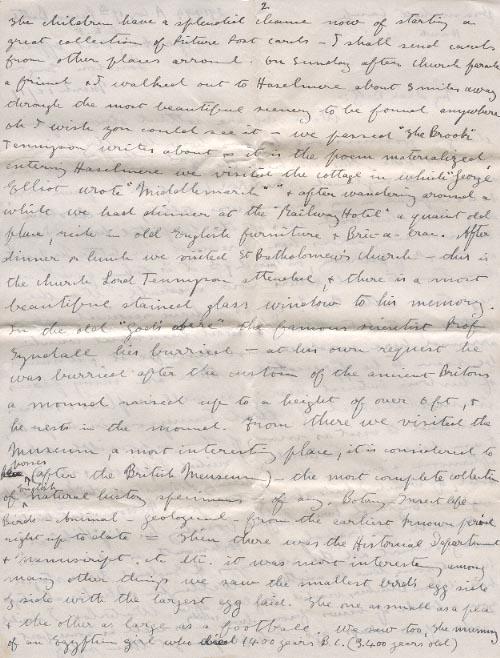 2
The children have a splendid chance now of starting a
great collection of Picture Post cards – I shall send cards
from other places arround. On Sunday after church parade
a friend & I walked out to Haselmere about 3 miles away
through the most beautiful scenery to be found anywhere
oh I wish you could see it – we passed "The Brook"
Tennyson writes about – it is the poem materialized.
entering Haselmere we visited the cottage in which "George
Elliot wrote "Middlemarch" " & after wandering around a
while we had dinner at the "Railway Hotel" a quaint old
place, rich in old English furniture & Bric-a-brac. After
dinner or lunch we visited St Batholomew's Church – this is
the church Lord Tennyson attended, & there is a most
beautiful stained glass window to his memory.
In the old "Gods acre" the famous scientist Prof
Tyndall lies burried – at his own request he
was burried after the custom of the ancient Britons
a mound raised up to a height of over 6 ft, &
he rests in the mound. From there we visited the
Museum, a most interesting place, it is considered to
posses (after the British Meuseum) – the most complete collection
of british natural history specimens of any. Botany Insect life –
Birds – Animal – geological – from the earliest known period
right up to date – Then there was the Historical Department
& Manuscript. etc etc. it was most interesting among
many other things we saw the smallest bird's egg side
by side with the largest egg laid. The one as small as a pea
& the other as large as a football. We saw too, the mummy
of an Egyptian girl who died 1400 years B.C. (3.400 years old)